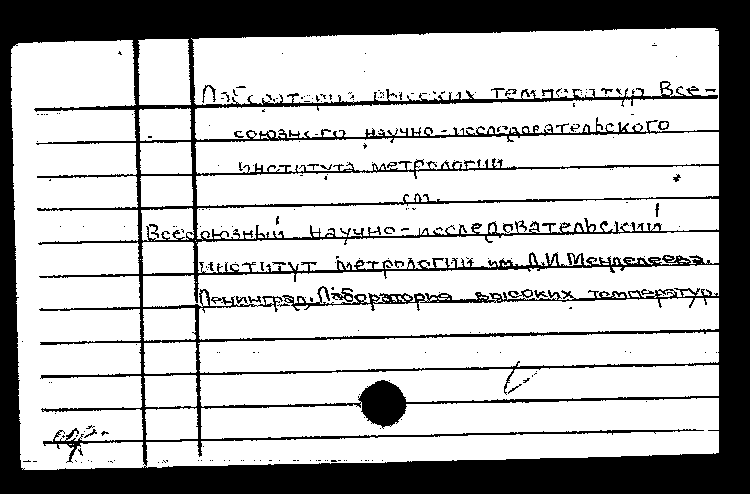 Лаборатория высоких температур Все-
союзного научно-исследовательского
института метрологии
см.
Всесоюзный научно-исследовательский
институт метрологии им. Д.И.Менделеева.
Ленинград. Лаборатория высоких температур.